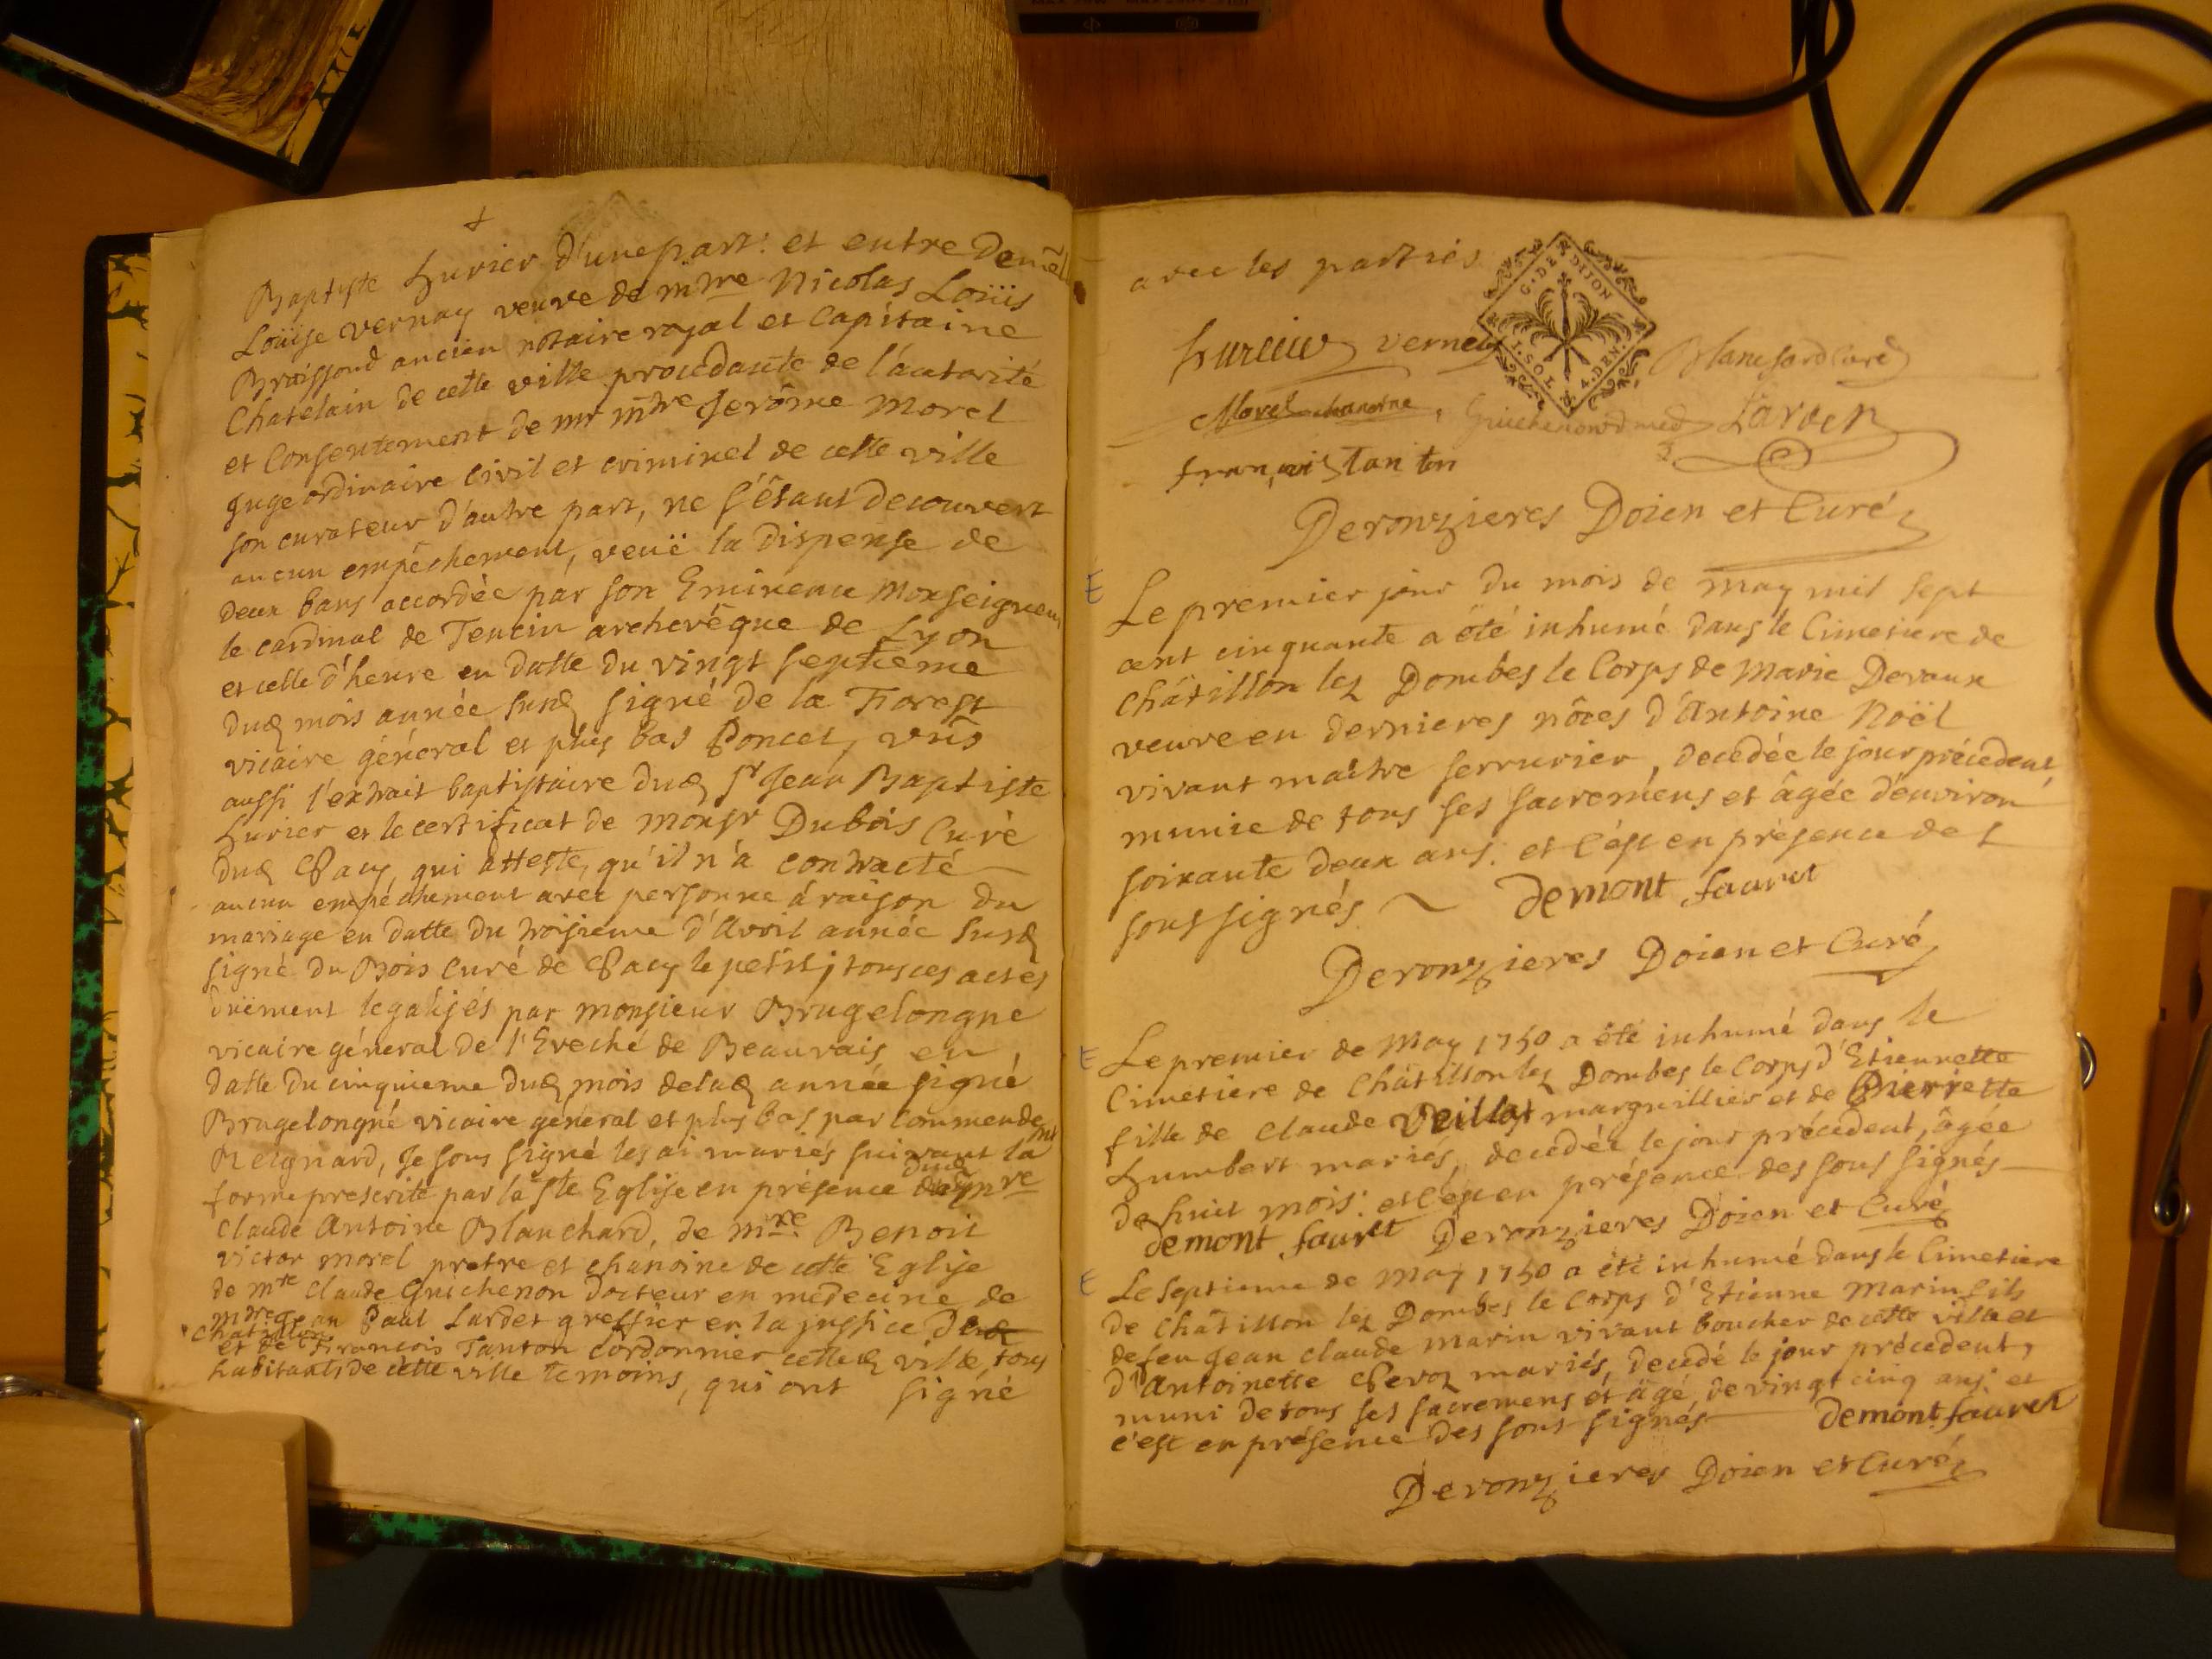 Baptiste hurier d'une part: et entre Demel
Louïse vernay veuve de mtre Nicolas Loüis
Braissoud ancien notaire royal et Capitaine
Chatelain de cette ville procedante de l'autorité
et Consentement de mr mtre Jerôme Morel
Juge ordinaire Civil et criminel de cette ville
son curateur d'autre part, ne s'étant decouvert
aucun empêchement, veuë la dispense de
deux bans accordée par son Eminence Monseigneur
le cardinal de Tencin archevêque de Lyon
et celle d'heure en datte du vingt septieme
dud mois année susd signé de la Forest
vicaire général et plus bas Poncet, vûs
aussi l'extrait baptistaire dud sr Jean Baptiste
hurier et le certificat de monsr Dubois Curé
dud Pacy, qui atteste, qu'il n'a contracté
aucun empéchement avec personne à raison du
mariage en datte du troisieme d'Avril année susd
signé du Bois Curé de Pacy le petit; tous ces actes
duëment legalisés par monsieur Brugelongne
vicaire géneral de l'Eveché de Beauvais en
datte du cinquieme dud mois de lad année signé
Brugelongné vicaire general et plus bas par commendemt
Reignard, Je sous signé les ai mariés suivant la
forme prescrite par la Ste Eglise en présence dud mre
Claude Antoine Blanchard, de mre Benoit
victor morel pretre et chanoine de cette Eglise
de mre Claude Guichenon docteur en médecine de
mtre Jean Paul Lardet greffier en la justice de
Chatillon
et de François Tanton Cordonnier ville, tous
habitants de cette ville temoins, qui ont signé
avec les parties
G. DE DIJON
I. SOL 4. DEN.
hurier verney Blanchard Curé
Morel chanoine, Guichenon d med Lardet
françois Tanton
Deronzieres Doien et Curé
E Le premier jour du mois de may mil sept
cent cinquante a été inhumé dans le Cimetiere de
Châtillon lez Dombes le Corps de Marie Devaux
veuve en dernieres nôces d'Antoine Noël
vivant maitre serrurier, decedée le jour précedent,
munie de tous ses sacremens et âgée d'environ
soixante deux ans: et c'est en présence des
soussignés ~ demont fauret
Deronzieres Doien et Curé
E Le premier de May 1750 a été inhumé dans le
Cimetiere de Châtillon lez Dombes le Corps d'Etiennette
fille de Claude Veillat marguillier et de Pierrette
humbert mariés, decedée le jour précedent, âgée
de huit mois: et c'est en présence des sous signés
demont fauret Deronzieres Doien et Curé
E Le septieme de May 1750 a été inhumé dans le Cimetiere
de Châtillon lez Dombes le Corps d'Etienne Marin fils
de feu Jean Claude Marin vivant boucher de cette ville et
d'Antoinette mariés, decedé le jour précedent,
muni de tous ses sacremens et âgé, de vingt cinq ans et
c'est en présence des sous signés demont fauret
Deronzieres Doien et Curé